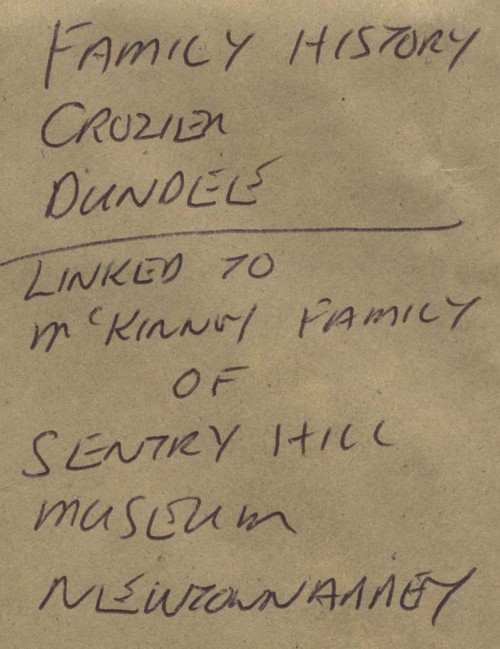 FAMILY HISTORY
CROZIER
DUNDEE
LINKED TO
McKINNEY FAMILY
OF
SENTRY HILL
MUSEUM
NEWTOWNABBEY